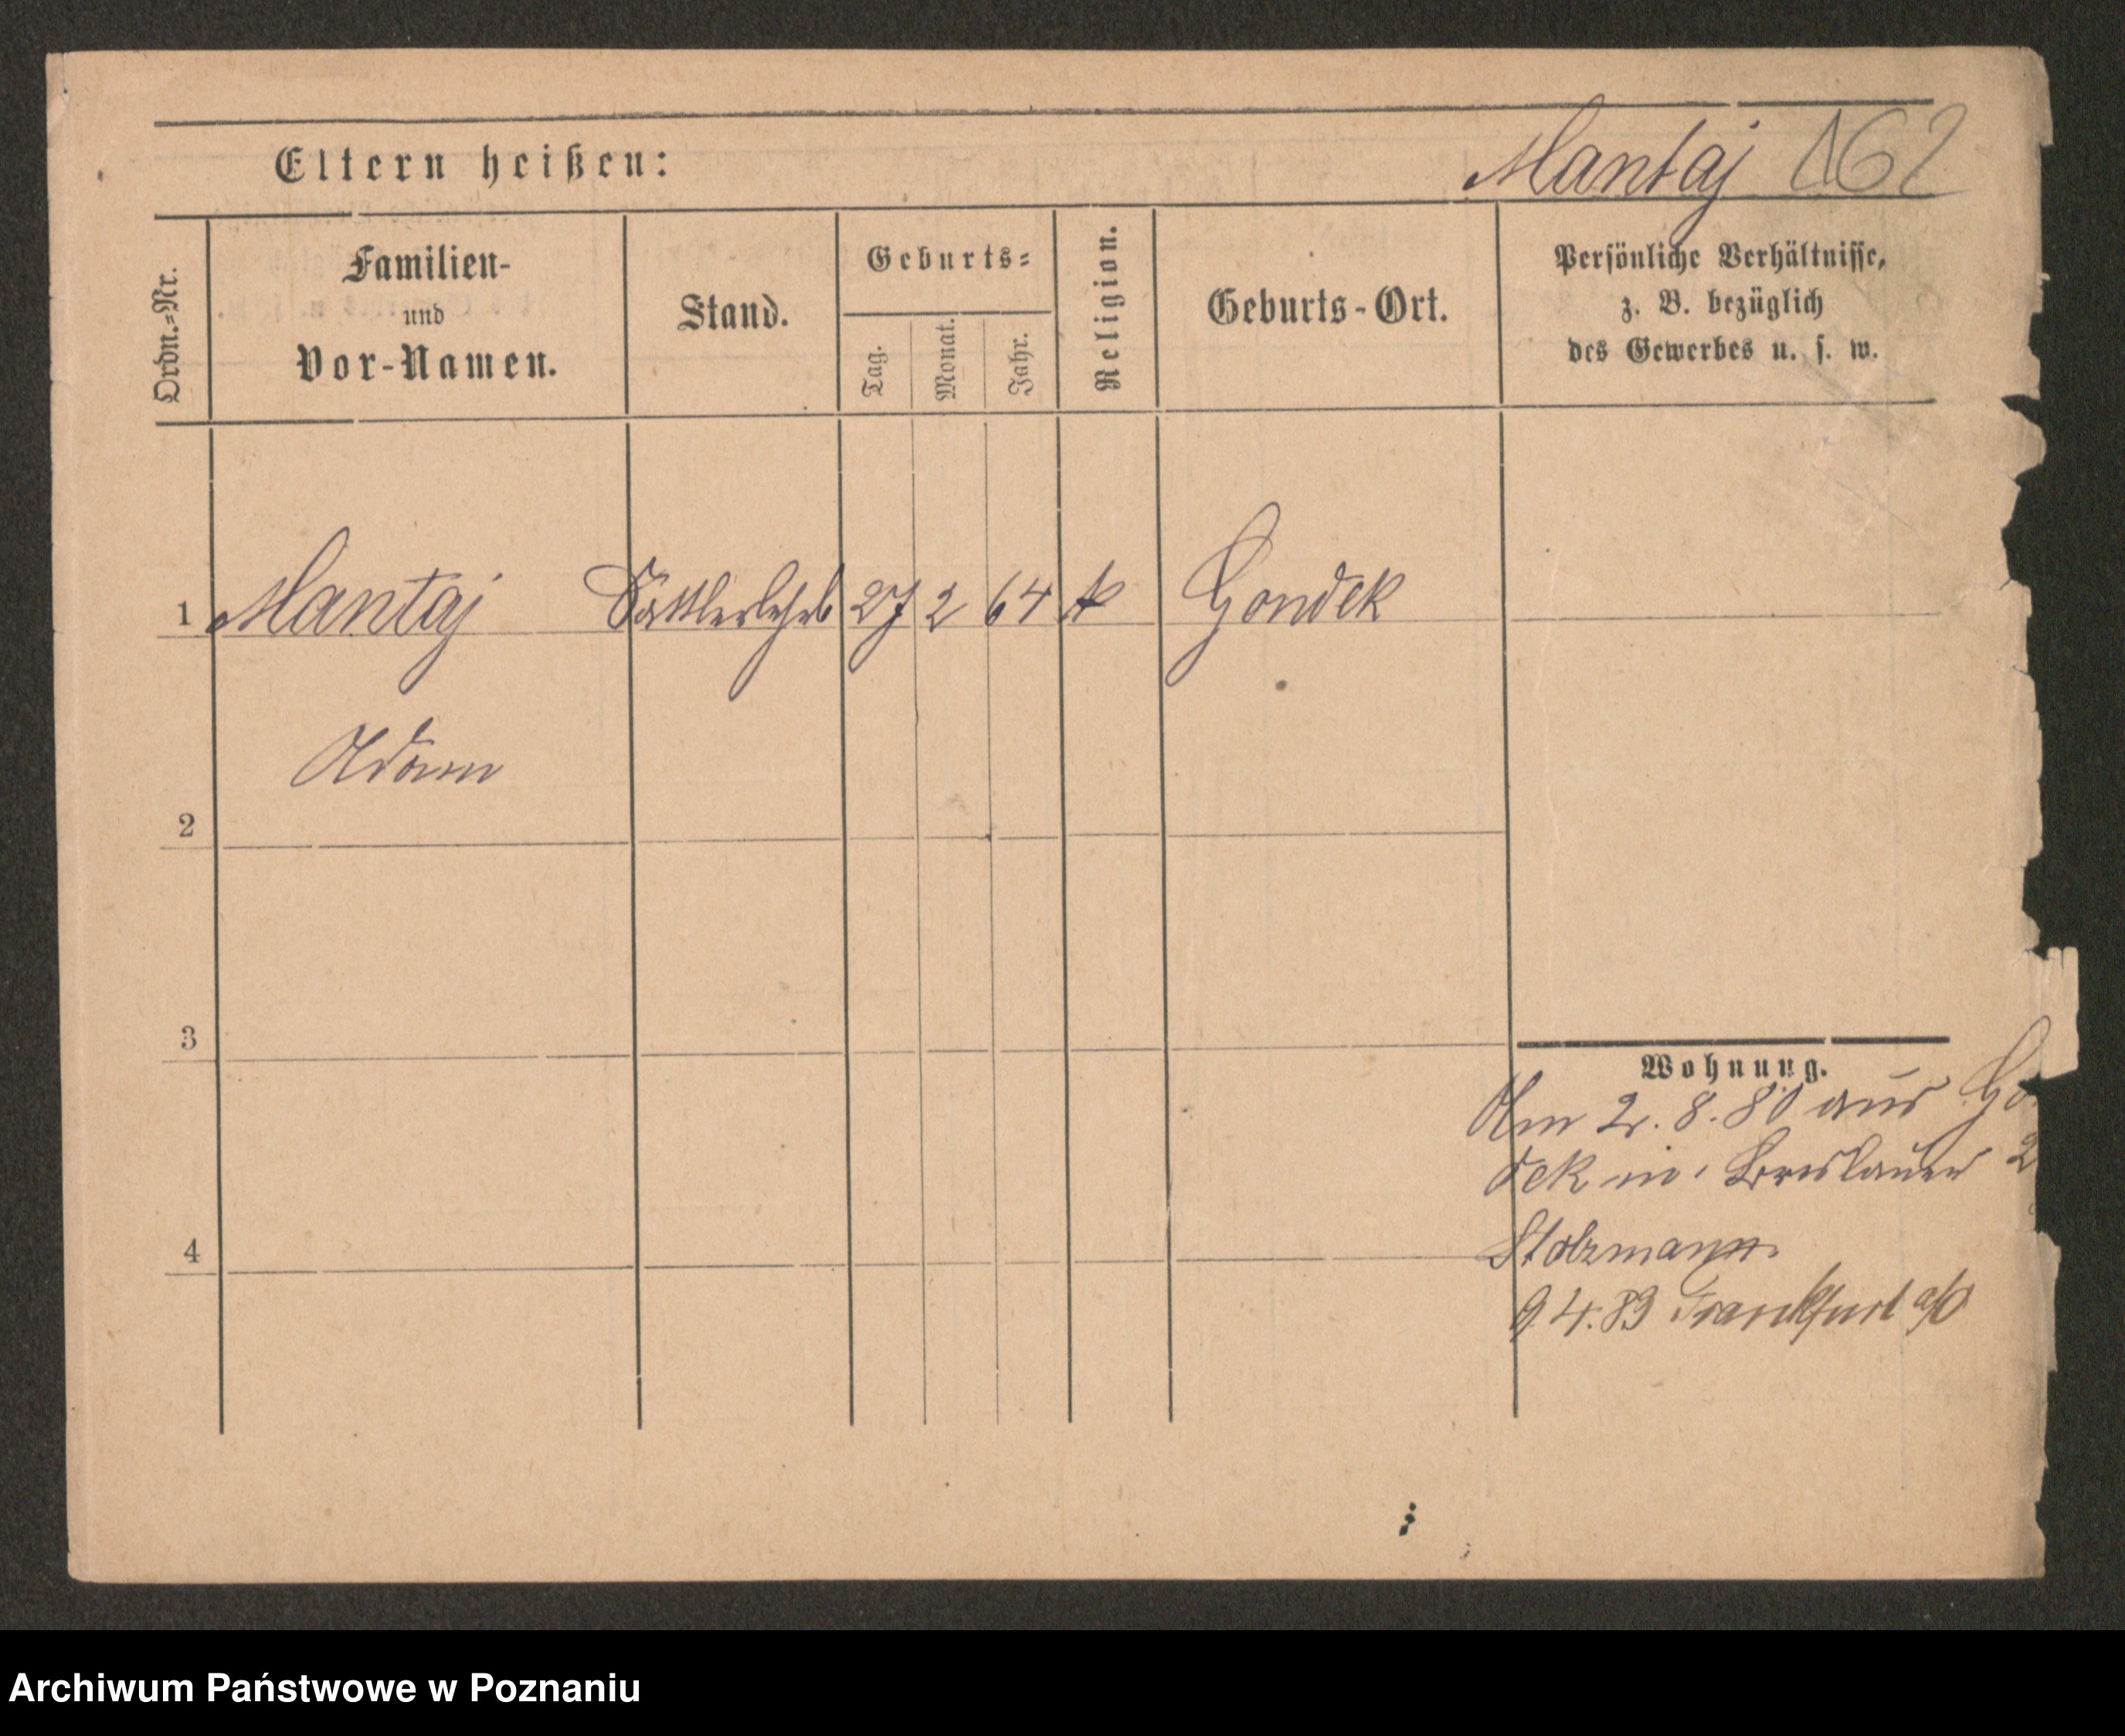 Eltern heißen:
Mantaj 162
Ordn.=Nr.
Familien-
und
Vor-Namen.
Stand.
Geburts=
Tag.
Monat.
Jahr.
Religion.
Geburts-Ort.
Persönliche Verhältnisse,
z. B. bezüglich
des Gewerbes u. s. w.
1 Mantaj Sattlerlehrl 27 2 64 k Gondek
Adam
2
3
Wohnung.
Am 2. 8. 80 aus Go
dek in Breslauer 2
4
Stolzmann.
9.4.83 Frankfurt a/O
Archiwum Państwowe w Poznaniu